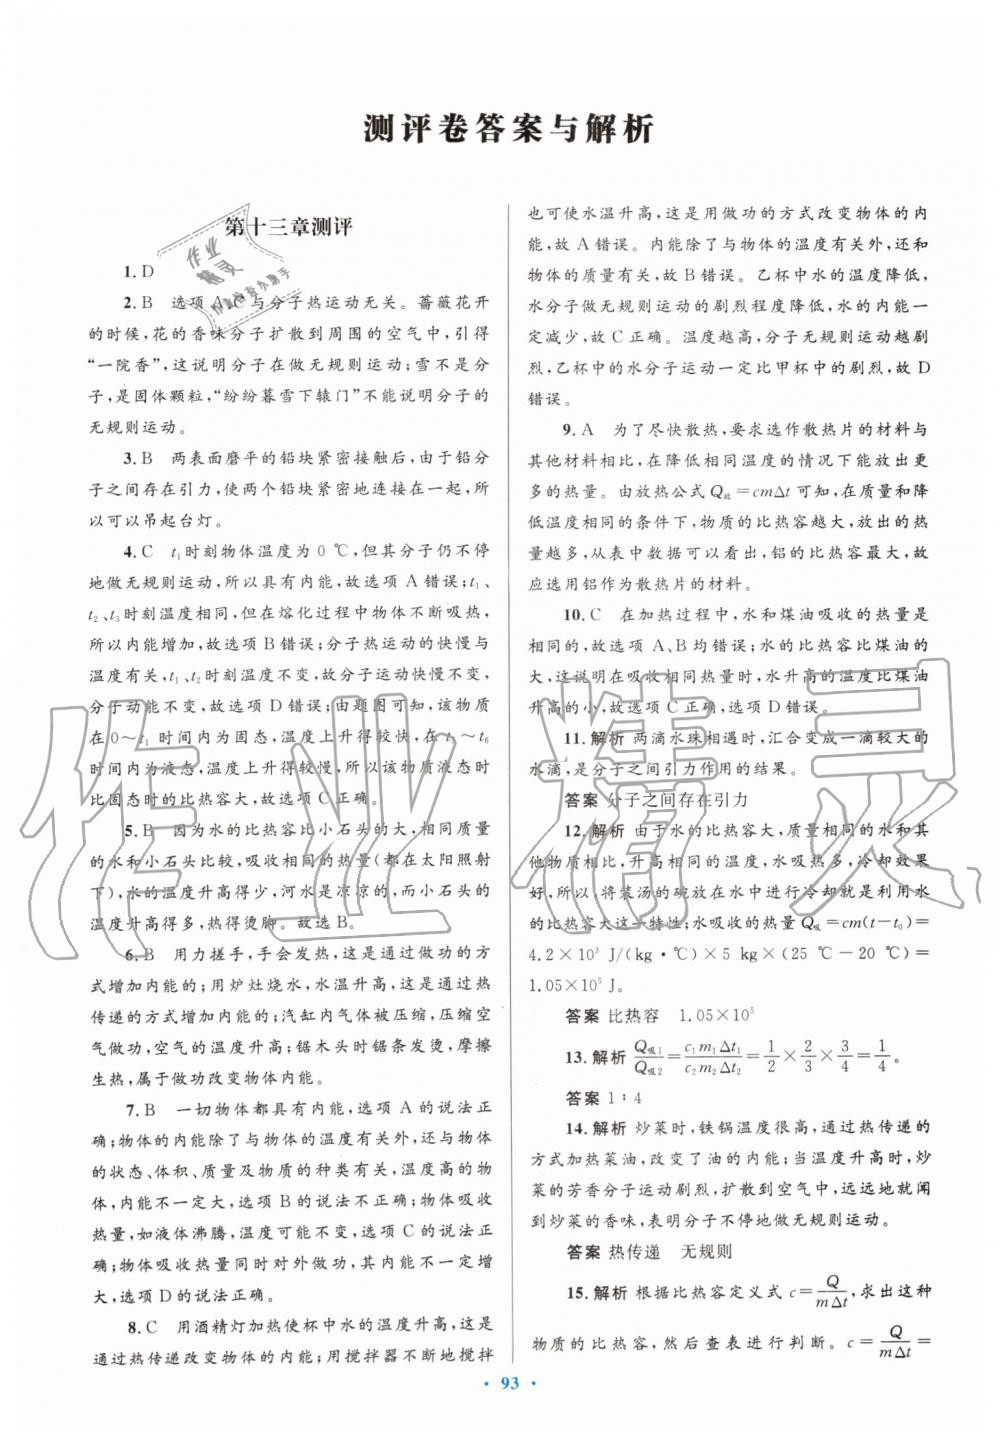 测评卷答案与解析
第十三章测评
1. D
2. B 选项 A、C 与分子热运动无关。蔷薇花开
的时候,花的香味分子扩散到周围的空气中,引得
“一院香”,这说明分子在做无规则运动;雪不是分
子,是固体颗粒,“纷纷暮雪下辕门”不能说明分子的
无规则运动。
3. B 两表面磨平的铅块紧密接触后,由于铅分
子之间存在引力,使两个铅块紧密地连接在一起,所
以可以吊起台灯。
4. C t₁时刻物体温度为 0 ℃,但其分子仍不停
地做无规则运动,所以具有内能,故选项 A 错误;t₁、
t₂、t₃时刻温度相同,但在熔化过程中物体不断吸热,
所以内能增加,故选项 B 错误;分子热运动的快慢与
温度有关,t₁、t₂时刻温度不变,故分子运动快慢不变,
分子动能不变,故选项 D 错误;由题图可知,该物质
在 0~t₁ 时间内为固态,温度上升得较快,在 t₃~t₆
时间内为液态,温度上升得较慢,所以该物质液态时
比固态时的比热容大,故选项 C 正确。
5. B 因为水的比热容比小石头的大,相同质量
的水和小石头比较,吸收相同的热量(都在太阳照射
下),水的温度升高得少,河水是凉凉的,而小石头的
温度升高得多,热得烫脚。故选 B。
6. B 用力搓手,手会发热,这是通过做功的方
式增加内能的;用炉灶烧水,水温升高,这是通过热
传递的方式增加内能的;汽缸内气体被压缩,压缩空
气做功,空气的温度升高;锯木头时锯条发烫,摩擦
生热,属于做功改变物体内能。
7. B 一切物体都具有内能,选项 A 的说法正
确;物体的内能除了与物体的温度有关外,还与物体
的状态、体积、质量及物质的种类有关,温度高的物
体,内能不一定大,选项 B 的说法不正确;物体吸收
热量,如液体沸腾,温度可能不变,选项 C 的说法正
确;物体吸收热量同时对外做功,其内能不一定增
大,选项 D 的说法正确。
8. C 用酒精灯加热使杯中水的温度升高,这是
通过热传递改变物体的内能;用搅拌器不断地搅拌
也可使水温升高,这是用做功的方式改变物体的内
能,故 A 错误。内能除了与物体的温度有关外,还和
物体的质量有关,故 B 错误。乙杯中水的温度降低,
水分子做无规则运动的剧烈程度降低,水的内能一
定减少,故 C 正确。温度越高,分子无规则运动越剧
烈,乙杯中的水分子运动一定比甲杯中的剧烈,故 D
错误。
9. A 为了尽快散热,要求选作散热片的材料与
其他材料相比,在降低相同温度的情况下能放出更
多的热量。由放热公式 Q放=cmΔt 可知,在质量和降
低温度相同的条件下,物质的比热容越大,放出的热
量越多,从表中数据可以看出,铝的比热容最大,故
应选用铝作为散热片的材料。
10. C 在加热过程中,水和煤油吸收的热量是
相同的,故选项 A、B 均错误;水的比热容比煤油的
大,这说明在吸收相同热量时,水升高的温度比煤油
升高的小,故选项 C 正确,选项 D 错误。
11. 解析 两滴水珠相遇时,汇合变成一滴较大的
水滴,是分子之间引力作用的结果。
答案 分子之间存在引力
12. 解析 由于水的比热容大,质量相同的水和其
他物质相比,升高相同的温度,水吸热多,冷却效果
好,所以,将装汤的碗放在水中进行冷却就是利用水
的比热容大这一特性;水吸收的热量 Q吸=cm(t−t₀)=
4.2×10³ J/(kg·℃)×5 kg×(25 ℃−20 ℃)=
1.05×10⁵ J。
答案 比热容 1.05×10⁵
13. 解析 Q吸1/Q吸2=c₁m₁Δt₁/c₂m₂Δt₂=1/2×2/3×3/4=1/4。
答案 1∶4
14. 解析 炒菜时,铁锅温度很高,通过热传递的
方式加热菜油,改变了油的内能;当温度升高时,炒
菜的芳香分子运动剧烈,扩散到空气中,远远地就闻
到炒菜的香味,表明分子不停地做无规则运动。
答案 热传递 无规则
15. 解析 根据比热容定义式 c=Q/mΔt,求出这种
物质的比热容,然后查表进行判断。c=Q/mΔt=
· 93 ·
作业
精灵
作业精灵